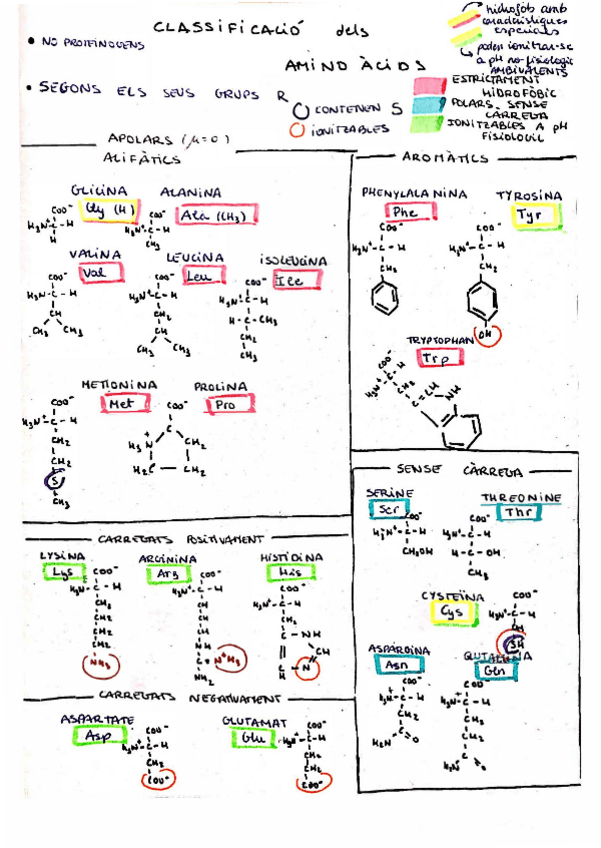 CLASSIFICACIÓ dels
AMINOÀCIDS
• NO PROTEINOGENS
• SEGONS ELS SEUS GRUPS R
hidrofòb amb
característiques
especials
poden ionitzar-se
a pH no-fisiologic
AMBIVALENTS
CONTENEN S
IONITZABLES
ESTRICTAMENT
HIDROFÒBIC
POLARS SENSE
CÀRREGA
IONITZABLES A pH
FISIOLOGIC
APOLARS (μ=0)
ALIFÀTICS
GLICINA
Gly (H)
COO⁻
H₃N⁺-C-H
H
ALANINA
Ala (CH₃)
COO⁻
H₃N⁺-C-H
CH₃
VALINA
Val
COO⁻
H₃N⁺-C-H
CH
CH₃ CH₃
LEUCINA
Leu
COO⁻
H₃N⁺-C-H
CH₂
CH
CH₃ CH₃
ISOLEUCINA
Ile
COO⁻
H₃N⁺-C-H
H-C-CH₃
CH₂
CH₃
METIONINA
Met
COO⁻
H₃N⁺-C-H
CH₂
CH₂
S
CH₃
PROLINA
Pro
COO⁻
C
H₂N⁺ CH₂
H₂C CH₂
AROMÀTICS
PHENYLALANINA
Phe
COO⁻
H₃N⁺-C-H
CH₂
TYROSINA
Tyr
COO⁻
H₃N⁺-C-H
CH₂
OH
TRYPTOPHAN
Trp
COO⁻
H₃N⁺-C-H
CH₂
C=CH
NH
SENSE CÀRREGA
SERINE
Ser
COO⁻
H₃N⁺-C-H
CH₂OH
THREONINE
Thr
COO⁻
H₃N⁺-C-H
H-C-OH
CH₃
CYSTEÏNA
Cys
COO⁻
H₃N⁺-C-H
SH
ASPARGINA
Asn
COO⁻
H₃N⁺-C-H
CH₂
C
H₂N O
GLUTAMINA
Gln
COO⁻
H₃N⁺-C-H
CH₂
CH₂
C
H₂N O
CARREGATS POSITIVAMENT
LYSINA
Lys
COO⁻
H₃N⁺-C-H
CH₂
CH₂
CH₂
CH₂
NH₃
ARGININA
Arg
COO⁻
H₃N⁺-C-H
CH₂
CH₂
CH₂
NH
C=N⁺H₂
NH₂
HISTIDINA
His
COO⁻
H₃N⁺-C-H
CH₂
C - NH
CH
CH - N
CARREGATS NEGATIVAMENT
ASPARTATE
Asp
COO⁻
H₃N⁺-C-H
CH₂
COO⁻
GLUTAMAT
Glu
COO⁻
H₃N⁺-C-H
CH₂
CH₂
COO⁻